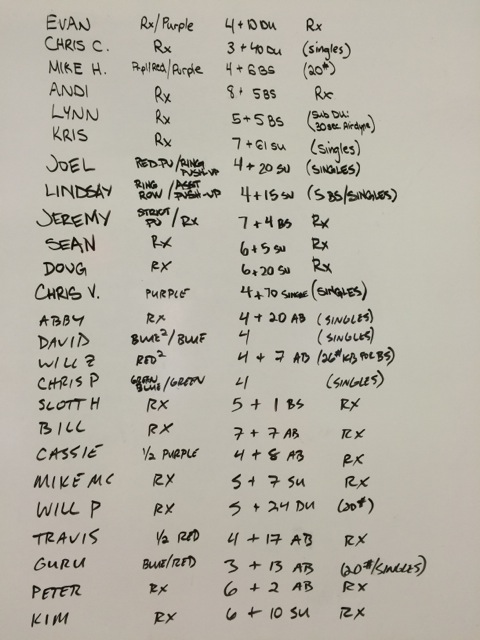 EVAN Rx/Purple 4+10 DU Rx
CHRIS C. Rx 3+40 DU (singles)
MIKE H. Purpl/Red/Purple 4+6 BS (20#)
ANDI Rx 8+5 BS Rx
LYNN Rx 5+5 BS (Sub DU: 30 sec Airdyne)
KRIS Rx 7+61 SU (Singles)
JOEL RED PU/RING PUSH-UP 4+20 SU (SINGLES)
LINDSAY RING ROW/ASST PUSH-UP 4+15 SU (5 BS/SINGLES)
JEREMY STRICT PU/Rx 7+4 BS Rx
SEAN Rx 6+5 SU Rx
DOUG RX 6+20 SU Rx
CHRIS V. PURPLE 4+70 SINGLE (SINGLES)
ABBY RX 4+20 AB (SINGLES)
DAVID BLUE²/BLUE 4 (SINGLES)
WILL Z RED² 4+7 AB (26# KB FOR BS)
CHRIS P GREEN BLUE/GREEN 4 (SINGLES)
SCOTT H RX 5+1 BS RX
BILL RX 7+7 AB RX
CASSIE 1/2 PURPLE 4+8 AB RX
MIKE MC RX 5+7 SU RX
WILL P RX 5+24 DU (20#)
TRAVIS 1/2 RED 4+17 AB RX
GURU BLUE/RED 3+13 AB (20#/SINGLES)
PETER RX 6+2 AB RX
KIM RX 6+10 SU RX